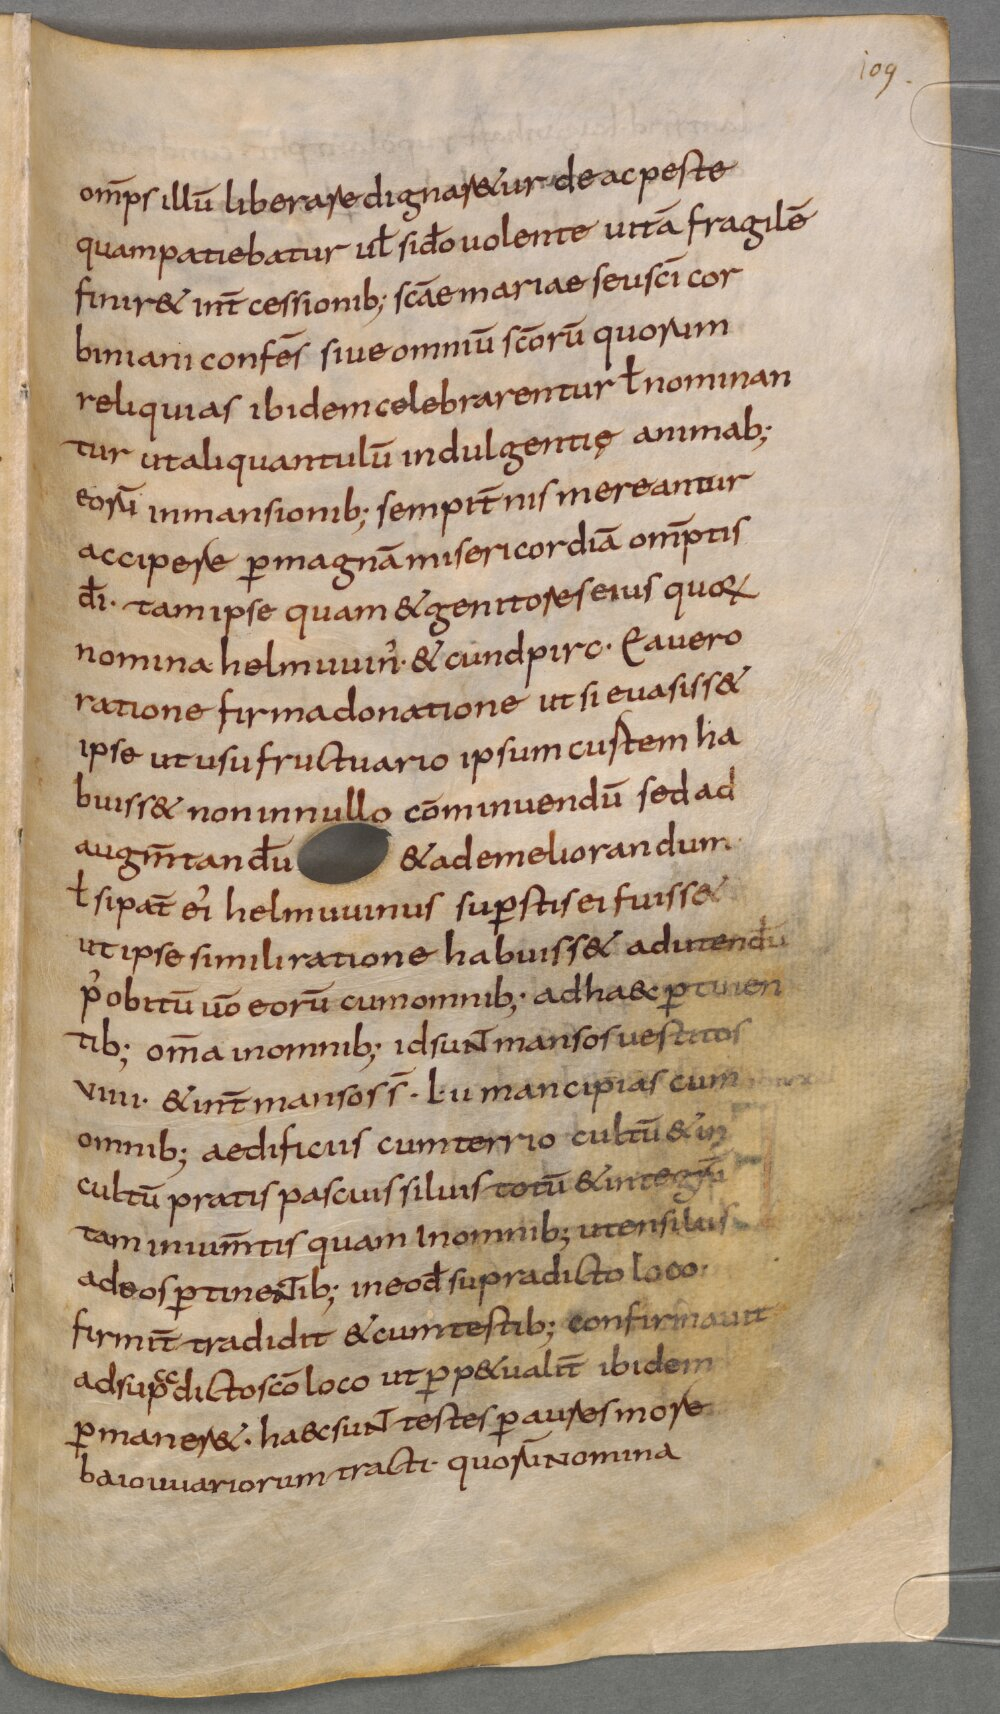 109.
om̄ps illū liberare dignar&ur de ac peste
quam patiebatur ul̄ si do̅ uolente uitā fragilē
finir& int̄cessionib; scāe mariae seu sc̄i cor
biniani confes̄ siue omniū sc̄orū quorum
reliquias ibidem celebrarentur ł nominan
tur ut aliquantulū indulgentię animab;
eorū in mansionib; sempit̄nis mereantur
accipere ꝑ magnā misericordiā om̄ptis
dī· tam ipse quam & genitores eius quoꝝ
nomina helmuuin̄· & cundpirc· Ea uero
ratione firma donatione ut si euasiss&
ipse ut usufructuario ipsum custem ha
buiss& non in nullo cōminuendū sed ad
augm̄tandū & ad emeliorandum
ł si pat̄ ei̓ helmuuinus suꝑstis ei fuiss&
ut ipse simili ratione habuiss& ad utendū
p̓ obitū uō eorū cum omnib; ad ha&c ꝑtinen
tib; om̄a in omnib; id suɴt mansos uestitos
viiii· & int̄ mansos s̄· l·ii mancipias cum
omnib; aedificiis cum terrio cultū & in
cultū pratis pascuis siluis totū & integrū
tam in ium̄tis quam In omnib; utensiliis
ad eos ꝑtineɴtib; in eod̄ supradicto loco·
firmit̄ tradidit & cum testib; confirmauit
ad sup̄dicto scō loco ut ꝑp&ualit̄ ibidem
ꝑmaner&· ha&c suɴt testes ꝑ aures more
baiouuariorum tracti· quorū nomina